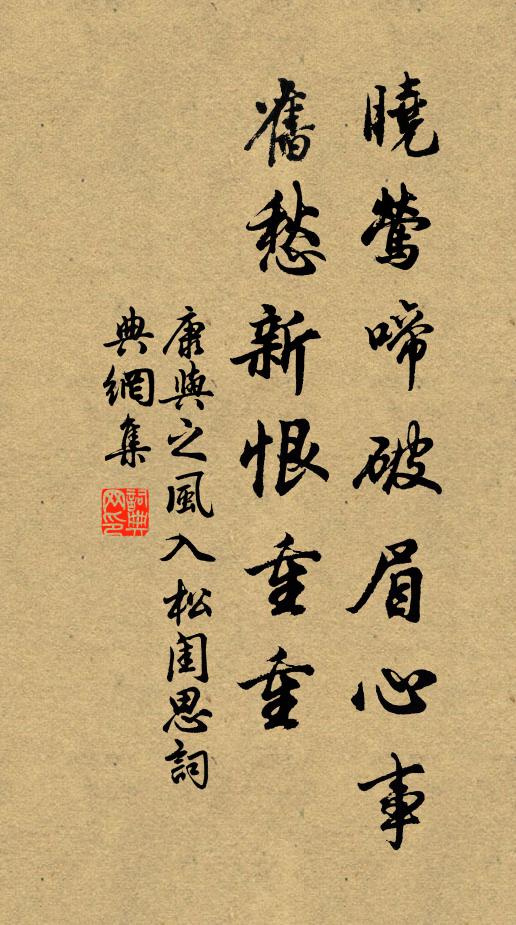 曉鶯啼破眉心事
舊愁新恨重重
康與之風入松閨思詞
典網集
詞典網印